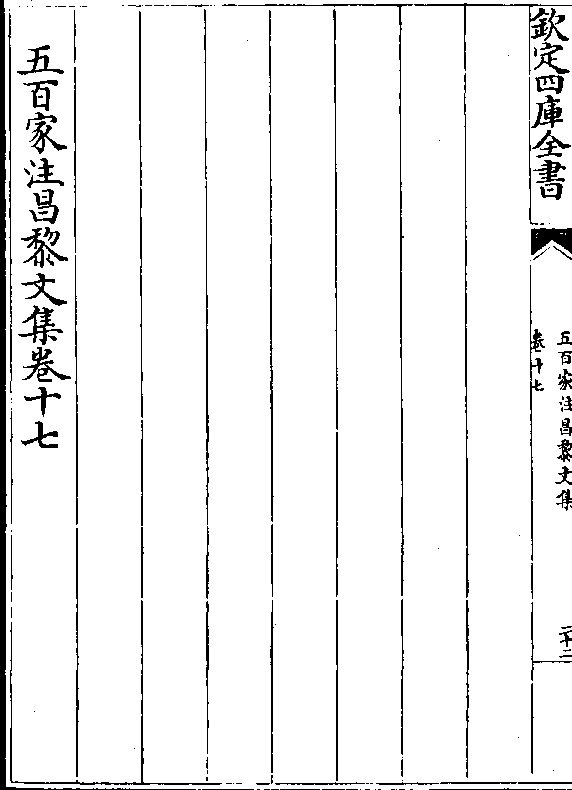 欽定四庫全書
五百家注昌黎文集
卷十七
二十二
五百家注昌黎文集卷十七